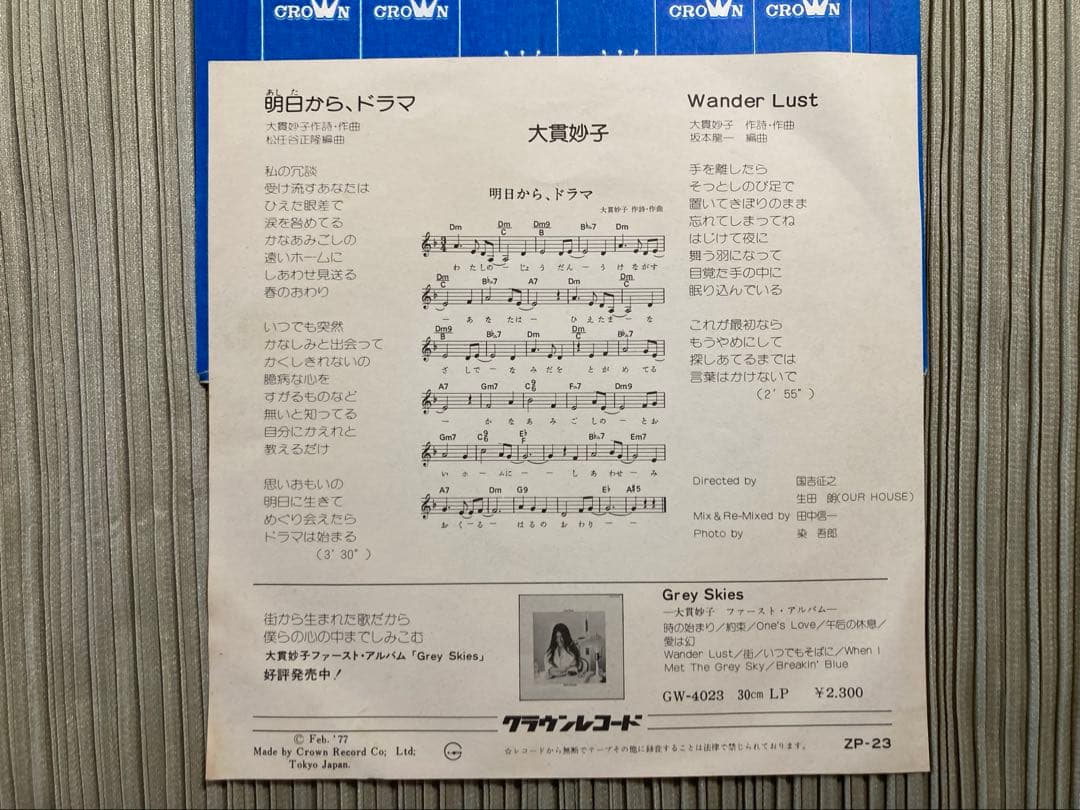 CROWN CROWN CROWN CROWN
あした
明日から、ドラマ
大貫妙子作詩・作曲
松任谷正隆編曲
私の冗談
受け流すあなたは
ひえた眼差で
涙を咎めてる
かなあみごしの
遠いホームに
しあわせ見送る
春のおわり
いつでも突然
かなしみと出会って
かくしきれないの
臆病な心を
すがるものなど
無いと知ってる
自分にかえれと
教えるだけ
思いおもいの
明日に生きて
めぐり会えたら
ドラマは始まる
(3′30″)
大貫妙子
明日から、ドラマ
大貫妙子 作詩・作曲
Dm Dm/C Dm9/B B♭△7 Dm
わたしの ー じょうだん ー うけながす
Dm/C B♭△7 A7 Dm Dm/C
ー あなたは ー ひえたまーな
Dm9/B B♭△7 Dm Dm/C B♭△7
ざしで ー なみだを とがめてる
A7 Gm7 C6/9 F△7 Dm9
ー かなあみごしの ー とお
Gm7 C6/9 E♭/F B♭△7 Em7
いホームに ー ー しあわせ ー み
A7 Dm G9 E♭ A♯5
おくーるー はるの おわり ー ー
Wander Lust
大貫妙子 作詩・作曲
坂本龍一 編曲
手を離したら
そっとしのび足で
置いてきぼりのまま
忘れてしまってね
はじけて夜に
舞う羽になって
目覚た手の中に
眠り込んでいる
これが最初なら
もうやめにして
探しあてるまでは
言葉はかけないで
(2′55″)
Directed by 国吉征之
生田 朗(OUR HOUSE)
Mix & Re-Mixed by 田中信一
Photo by 染 吾郎
街から生まれた歌だから
僕らの心の中までしみこむ
大貫妙子ファースト・アルバム「Grey Skies」
好評発売中!
Grey Skies
—大貫妙子 ファースト・アルバム—
時の始まり/約束/One's Love/午后の休息/
愛は幻
Wander Lust/街/いつでもそばに/When I
Met The Grey Sky/Breakin' Blue
GW-4023 30cm LP ¥2.300
クラウンレコード
© Feb. '77
Made by Crown Record Co; Ltd;
Tokyo Japan.
☆レコードから無断でテープその他に録音することは法律で禁じられております。
ZP-23